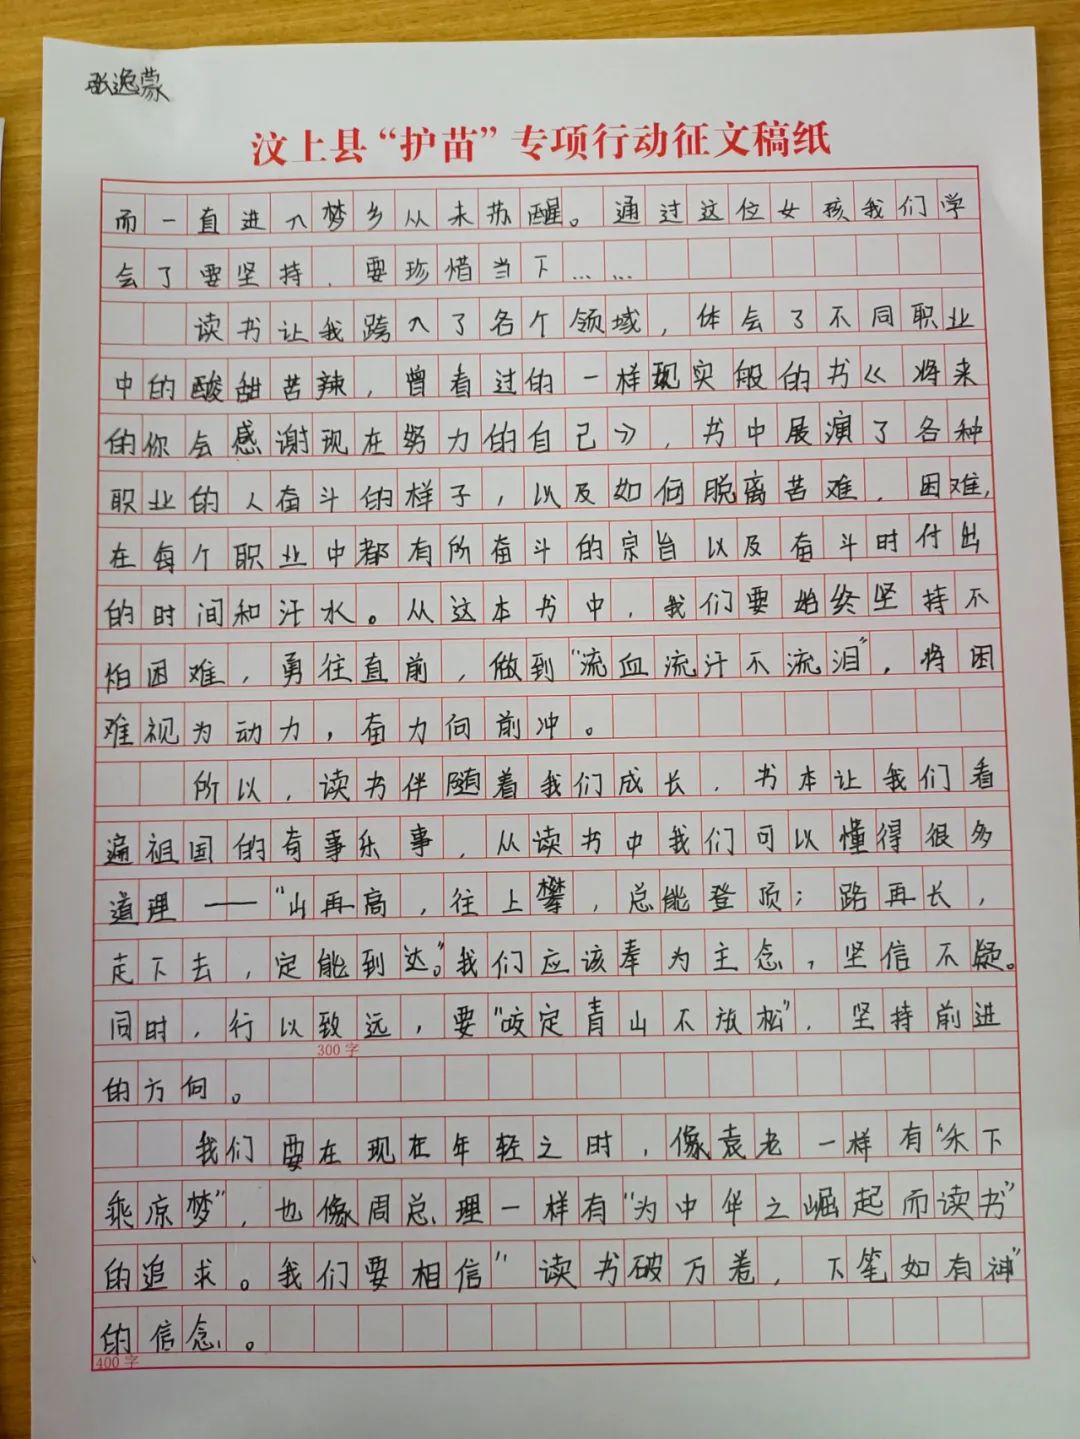 张逸蒙
汶上县“护苗”专项行动征文稿纸
而一直进入梦乡从未苏醒。通过这位女孩我们学
会了要坚持，要珍惜当下……
读书让我跨入了各个领域，体会了不同职业
中的酸甜苦辣，曾看过的一样现实般的书《将来
的你会感谢现在努力的自己》，书中展演了各种
职业的人奋斗的样子，以及如何脱离苦难、困难，
在每个职业中都有所奋斗的宗旨以及奋斗时付出
的时间和汗水。从这本书中，我们要始终坚持不
怕困难，勇往直前，做到“流血流汗不流泪”，将困
难视为动力，奋力向前冲。
所以，读书伴随着我们成长，书本让我们看
遍祖国的奇事乐事，从读书中我们可以懂得很多
道理——“山再高，往上攀，总能登顶；路再长，
走下去，定能到达。”我们应该奉为主念，坚信不疑。
同时，行以致远，要“咬定青山不放松”，坚持前进
300字
的方向。
我们要在现在年轻之时，像袁老一样有“禾下
乘凉梦”，也像周总理一样有“为中华之崛起而读书”
的追求。我们要相信“读书破万卷，下笔如有神”
的信念。
400字